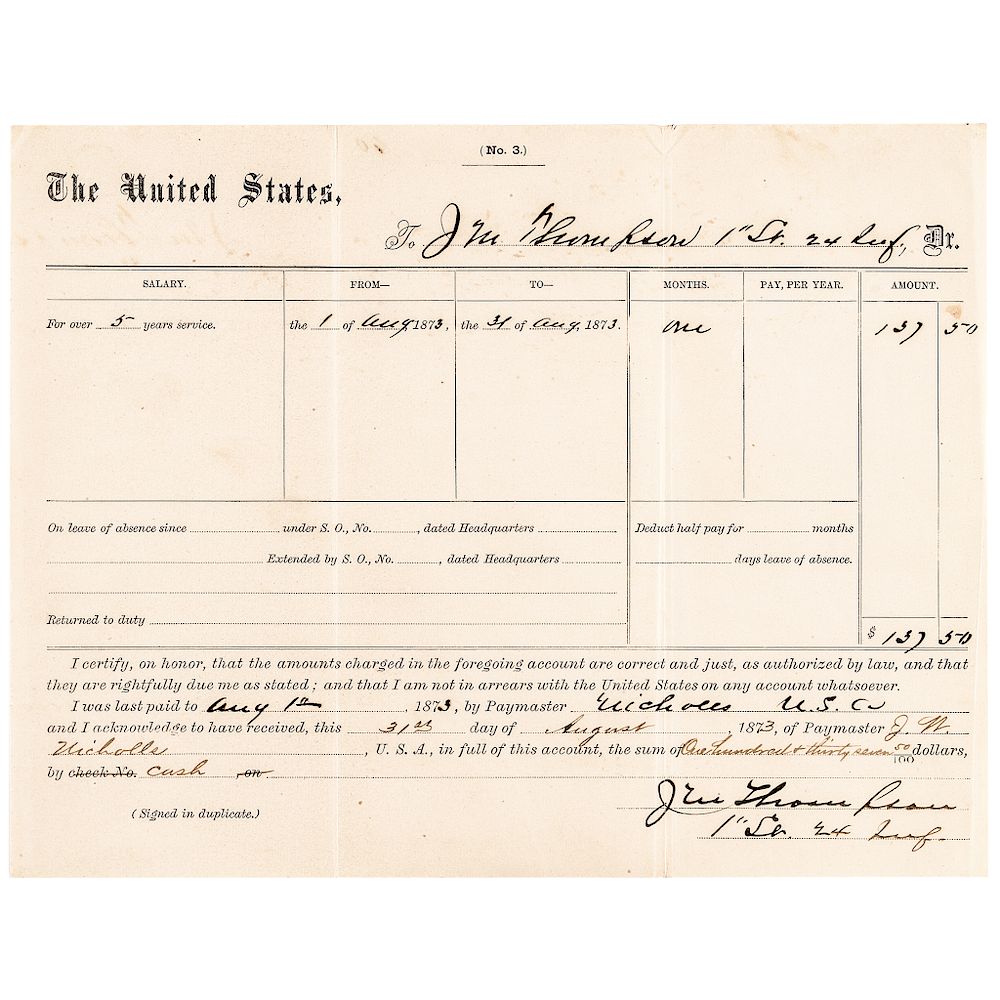 (No. 3.)
The United States,
To J M Thompson 1" Lt. 24 Inf., Dr.
SALARY. FROM— TO— MONTHS. PAY, PER YEAR. AMOUNT.
For over 5 years service. the 1 of Aug, 1873, the 31 of Aug, 1873. One 137 50
On leave of absence since under S. O., No. , dated Headquarters Deduct half pay for months
Extended by S. O., No. , dated Headquarters days leave of absence.
Returned to duty
$ 137 50
I certify, on honor, that the amounts charged in the foregoing account are correct and just, as authorized by law, and that
they are rightfully due me as stated; and that I am not in arrears with the United States on any account whatsoever.
I was last paid to Aug 1st , 1873, by Paymaster Nicholls U.S.A
and I acknowledge to have received, this 31st day of August 1873, of Paymaster J. W.
Nicholls , U. S. A., in full of this account, the sum of One hundred & thirty seven 50/100 dollars,
by check No. cash , on
J M Thompson
(Signed in duplicate.)
1" Lt. 24 Inf.